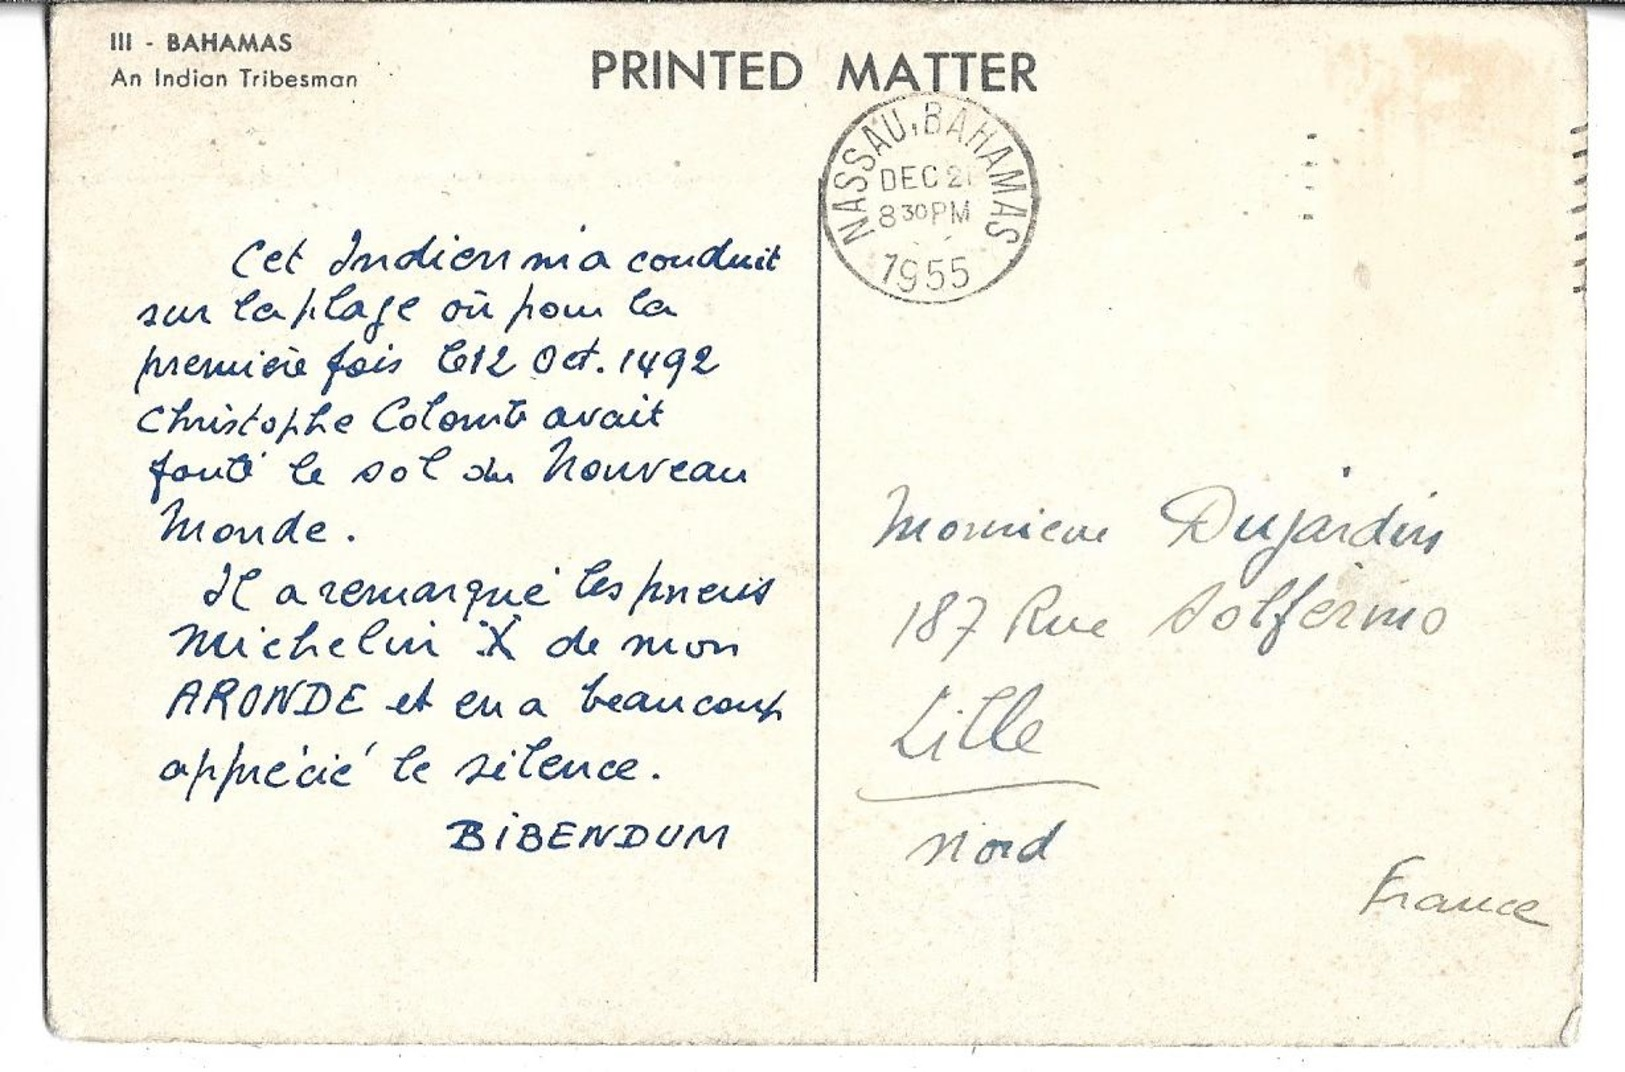 III - BAHAMAS
An Indian Tribesman
PRINTED MATTER
NASSAU, BAHAMAS
DEC 21
8 30 PM
1955
Cet Indien m'a conduit
sur la plage où pour la
première fois le 12 Oct. 1492
Christophe Colomb avait
foulé le sol du Nouveau
Monde.
Il a remarqué les pneus
Michelin X de mon
ARONDE et en a beaucoup
apprécié le silence.
BIBENDUM
Monsieur Dujardin
187 Rue Solférino
Lille
Nord
France